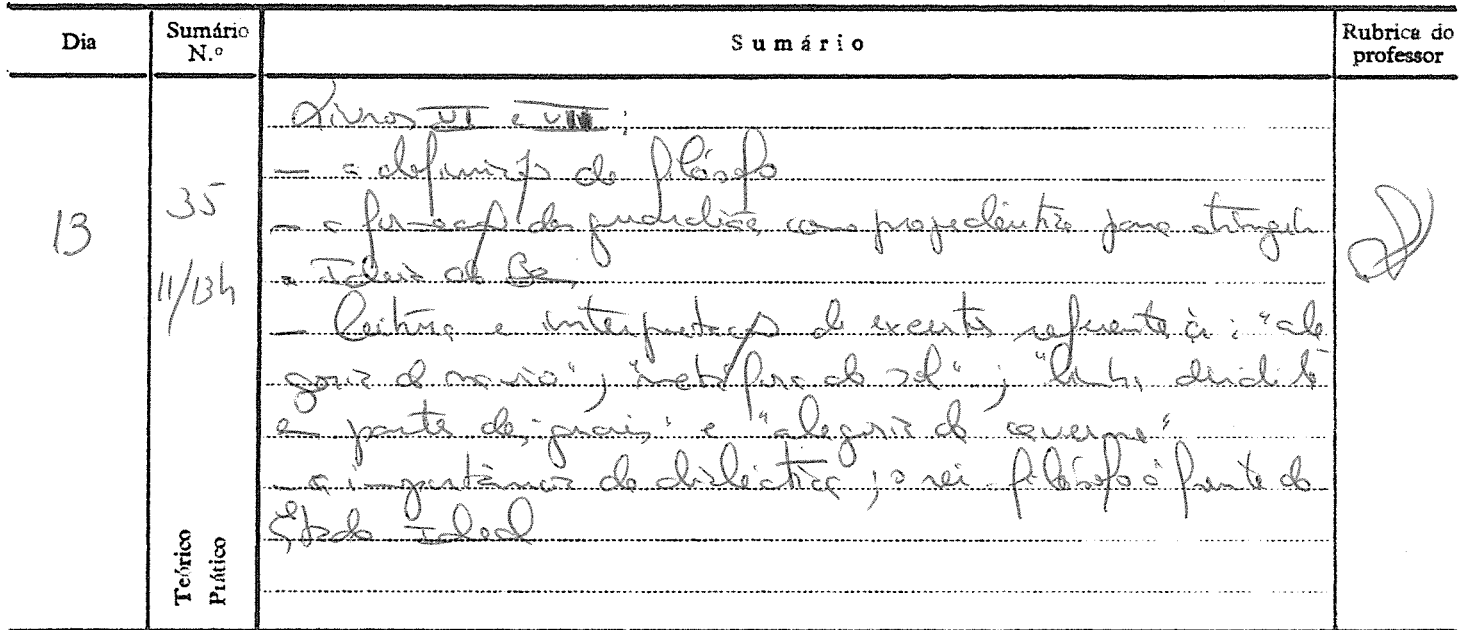 Dia
Sumário N.º
Sumário
Rubrica do professor
13
35
11/13h
Teórico
Prático
Livros VI e VII:
- a definição do filósofo
- a formação dos guardiões como propedêutica para atingir
a Ideia do Bem
- Leitura e interpretação de excertos referentes à: "ale
goria do navio"; "metáfora do sol"; "linha dividida
em partes desiguais" e "alegoria da caverna".
- a importância da dialéctica; o rei-filósofo à frente do
Estado Ideal